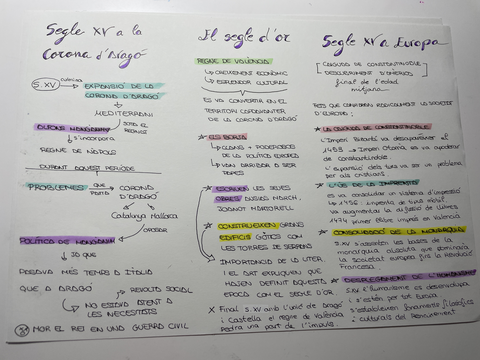 Segle XV a la
Corona d'Aragó
S.XV
EXPANSIÓ DE LA
CORONA D'ARAGÓ
MEDITERRANI
s'incorpora
REGNE DE NÀPOLS
DURANT AQUEST PERÍODE
PROBLEMES QUE
CORONA
D'ARAGÓ
Catalunya Mallorca
JA QUE
PASSAVA MÉS TEMPS A ITÀLIA
QUE A ARAGÓ
REVOLTA SOCIAL
NO ESTAVA ATENT A
LES NECESSITATS
MOR EL REI EN UNA GUERRA CIVIL
El segle d'or
REGNE DE VALÈNCIA
CREIXEMENT ECONÒMIC
ESPLENDOR CULTURAL
ES VA CONVERTIR EN EL
TERRITORI CAPDAVANTER
DE LA CORONA D'ARAGÓ
ELS BORJA
CLANS + PODEROSOS
DE LA POLÍTICA EUROPEA
VAN ARRIBAR A SER
PAPES
ESCRIUEN LES SEVES
OBRES AUSIÀS MARCH,
JOANOT MARTORELL
CONSTRUEIXEN GRANS
EDIFICIS GÒTICS COM
LES TORRES DE SERRANS
IMPORTÀNCIA DE LA LITER.
I EL ART EXPLIQUEN QUE
HAGEN DEFINIT AQUESTA
ÈPOCA COM EL SEGLE D'OR.
X Final s.XV amb l'unió d'Aragó
i Castella el regne de València
Segle XV a Europa
CAIGUDA DE CONSTANTINOBLE
DESCOBRIMENT D'AMÈRICA
final de l'edad
mitjana
FETS QUE CANVIAREN RADICALMENT LA SOCIETAT
D'EUROPA:
LA CAIGUDA DE CONSTANTINOBLE
1453 → Imperi Otomà es va apoderar
de Constantinoble.
L'expansió dels turcs va ser un problema
per als cristians.
L'ÚS DE LA IMPREMTA
va augmentar la difusió de llibres
1474 primer llibre imprés en València
CONSOLIDACIÓ DE LA MONARQUIA
monarquia absoluta que dominaria
la societat europea fins la Revolució
Francesa
DESPLEGAMENT DE L'HUMANISME
S.XV l'humanisme es desenvolupa
i s'estén per tot Europa.
s'estableixen fonaments filosòfics
i culturals del Renaixement